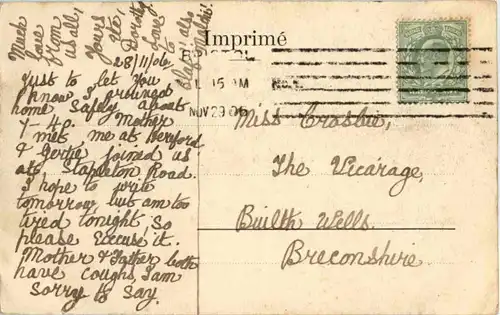 28/11/06
Just to let You
know I arranged
home Safely about
7-40. Mother
met me at Hereford
& Gertie joined us
at Stapleton Road.
I hope to write
tomorrow, but am too
tired tonight, So
please Excuse it.
Mother & Father both
have coughs, I am
Sorry to Say.
Much
love
from
us all,
Yours
etc:
Dorothy
Love
to
also
Imprimé
BRISTOL
15 AM
NOV 29 06
Miss Crosbie,
The Vicarage,
Builth Wells,
Breconshire.